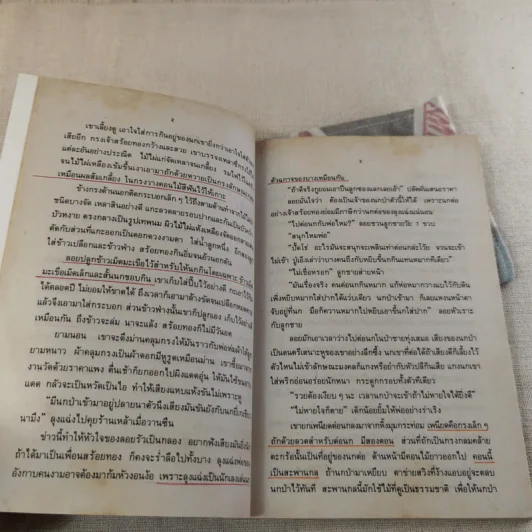 เขาเลี้ยงดู เอาใจใส่การกินอยู่ของนกเขายิ่งกว่าเอาใจใส่
เสียอีก กรงเจ้าสร้อยทองกว้างและสวย เขาบรรจงเหลาซี่กรงไม้
แต่ละอันอย่างประณีต ไม้ไผ่แก่จัดเหลาจนเกลี้ยง รมไฟ
จนไม้ไผ่เหลืองเข้มขึ้นเงาเอามาถักด้วยหวายเป็นกรง
เหมือนผลส้มเกลี้ยง ในกรงวางคอนไม้สีฟันไว้ให้เกาะ
ข้างกรงด้านนอกติดกระบอกเล็ก ๆ ไว้
ชนิดบางจัด เหลาสินอย่างดี แกะลวดลายรอบปากและก้น
บัวหงาย ตรงกลางเป็นรูปเทพนม ผิวไม้ไผ่
ตัดกับส่วนที่แกะออกเป็นดอกดวงงามตา ใส่น้ำลูกหนึ่ง อีกลูก
ใส่ข้าวเปลือกและข้าวฟ่าง สร้อยทองกินอิ่มจนอ้วน
ลอยปลูกข้าวเม็ดมะเขือไว้สำหรับให้นกกินโดยเฉพาะ
มะเขือเม็ดเล็กและสั้นนกชอบกิน เขาเก็บใส่ปี๊บไว้
ได้ตลอดปี ไม่ยอมให้ขาดได้ ถึงเวลาก็เอามาล้างขัดจน
แล้วจึงเอามาใส่กระบอก ส่วนข้าวฟ่างนั้นเขาก็ปลูกเอง เก็บไว้
เหมือนกัน ถึงข้าวจะล่ม นาจะแล้ง สร้อยทองก็ไม่มีวันอด
ยามนอน เขาจะดึงม่านคลุมกรงให้มันราวกับพ่อห่มผ้าให้ลูก
ยามหนาว ผ้าคลุมกรงเป็นผ้าดอกมีหูรูดเหมือนม่าน เขา
งานวัดด้วยราคาแพง ตื่นเช้าก็ยกออกไปผึ่งแดดอุ่น ให้มันใช้ขน
แดด กลัวจะเป็นหวัดเป็นไอ ทำให้เสียงแหบแห้งขันไม่เพราะหู
"มีนกป่าเข้ามาอยู่ปลายนาตัวนึงเสียงมันขันยังกับนก
นามึง" ลุงแฉ่งไปคุยร้านเหล้าเมื่อวานซืน
ข่าวนี้ทำให้หัวใจของลอยรัวเป็นกลอง อยากฟังเสียงมัน
ถ้าได้มาเป็นเพื่อนสร้อยทอง ก็คงจะร่ำลือไปทั้งบาง ลุงแฉ่ง
อังกาบคนงามอาจต้องมาก้มหัวงอนง้อ เพราะลุงแฉ่งเป็นนักเลง
ตัวฉกาจของบางเหมือนกัน
"ถ้าดีจริงกูยอมเอาปืนลูกซองแลกเลยเอ้า" ปลัดพันแสนอาฆา
ลอยมั่นใจว่า ต้องเป็นเจ้านกป่าตัวนี้ให้ได้ เพราะนกต่อ
อย่างเจ้าสร้อยทองย่อมมีภาษีกว่านกต่อของลุงแฉ่งแน่นอน
"ไปต่อนกกับพ่อไหม?" ลอยชวนลูกชายวัย 7 ขวบ
"สนุกไหมพ่อ"
"ปัดโธ่ อะไรมันจะสนุกจะเพลินเท่าต่อนกล่ะโว้ย จวนจะเข้า
ไม่เข้า ปู่เอ็งเล่าว่าบางคนถึงกับหยิบขี้นกกินแทนหมากทีเดียว"
"ไม่เชื่อหรอก" ลูกชายส่ายหน้า
"มันเรื่องจริง คนต่อนกกินหมาก แก้ห่อหมากวางแบไว้กับดิน
เพิ่งหยิบหมากใส่ปากได้แว่บเดียว นกป่าเข้ามา ก็เลยแหงนหน้าตา
จับอยู่ที่นก มือก็ควานหมากไปหยิบเอาขี้นกมาใส่ปาก" ลอยหัวเราะ
กับลูกชาย
ลอยมักเอาเวลาว่างไปต่อนกในป่าชายทุ่งเสมอ เสียงของนกป่า
เป็นดนตรีเสนาะหูของเขาอย่างลึกซึ้ง นกเขาที่ต่อได้ถ้าเสียงดีก็เลี้ยงไว้
ตัวไหนไม่เข้าลักษณะมงคลก็แกงหรือย่างเสีย หรือยำกับหัวปลีกินเสีย แกงนกเขา
ใส่พริกอ่อนอร่อยนักหนา กระดูกกรอบทั้งตัวทีเดียว
"รวยต้องเงียบ ๆ นะ เวลานกป่าจะเข้าถ้าไม่หายใจได้ยิ่งดี"
"ไม่หายใจก็ตาย" เด็กน้อยยิ้มให้พ่ออย่างร่าเริง
เขายกเพนียดต่อนกลงมาจากหิ้งมุมกระท่อม เพนียดคือกรงเล็ก ๆ
ถักด้วยลวดสำหรับต่อนก มีสองตอน ส่วนที่ถักเป็นกรงกลมคล้าย
ตะกร้อนั้นเป็นที่อยู่ของนกต่อ ด้านหน้ามีคอนไม้ยาวออกไป คอนนี้
เป็นสะพานกล ถ้านกป่ามาเหยียบ ตาข่ายสวิงที่ง้างแอบอยู่จะตลบ
นกป่าไว้ทันที สะพานกลนี้มักใช้ไม้ที่ดูเป็นธรรมชาติ เพื่อให้นกป่า